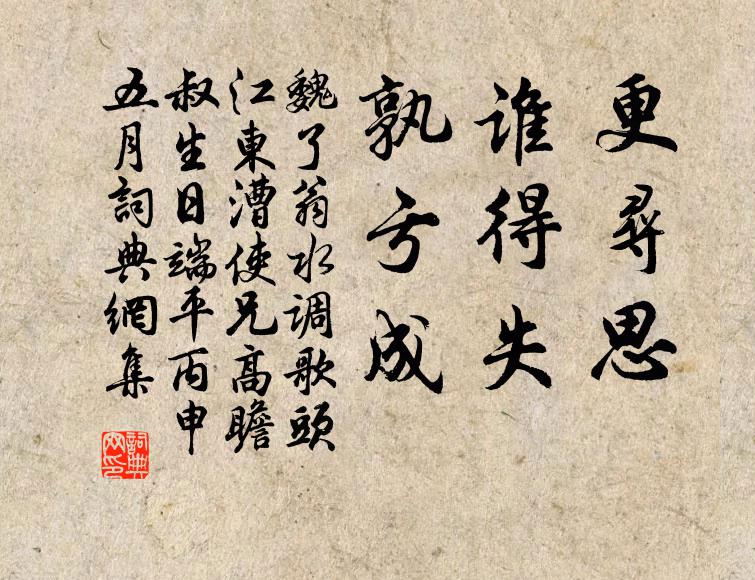 更尋思
谁得失
孰亏成
魏了翁水调歌頭
江東漕使兄高瞻
叔生日端平丙申
五月詞典網集
詞典
网印